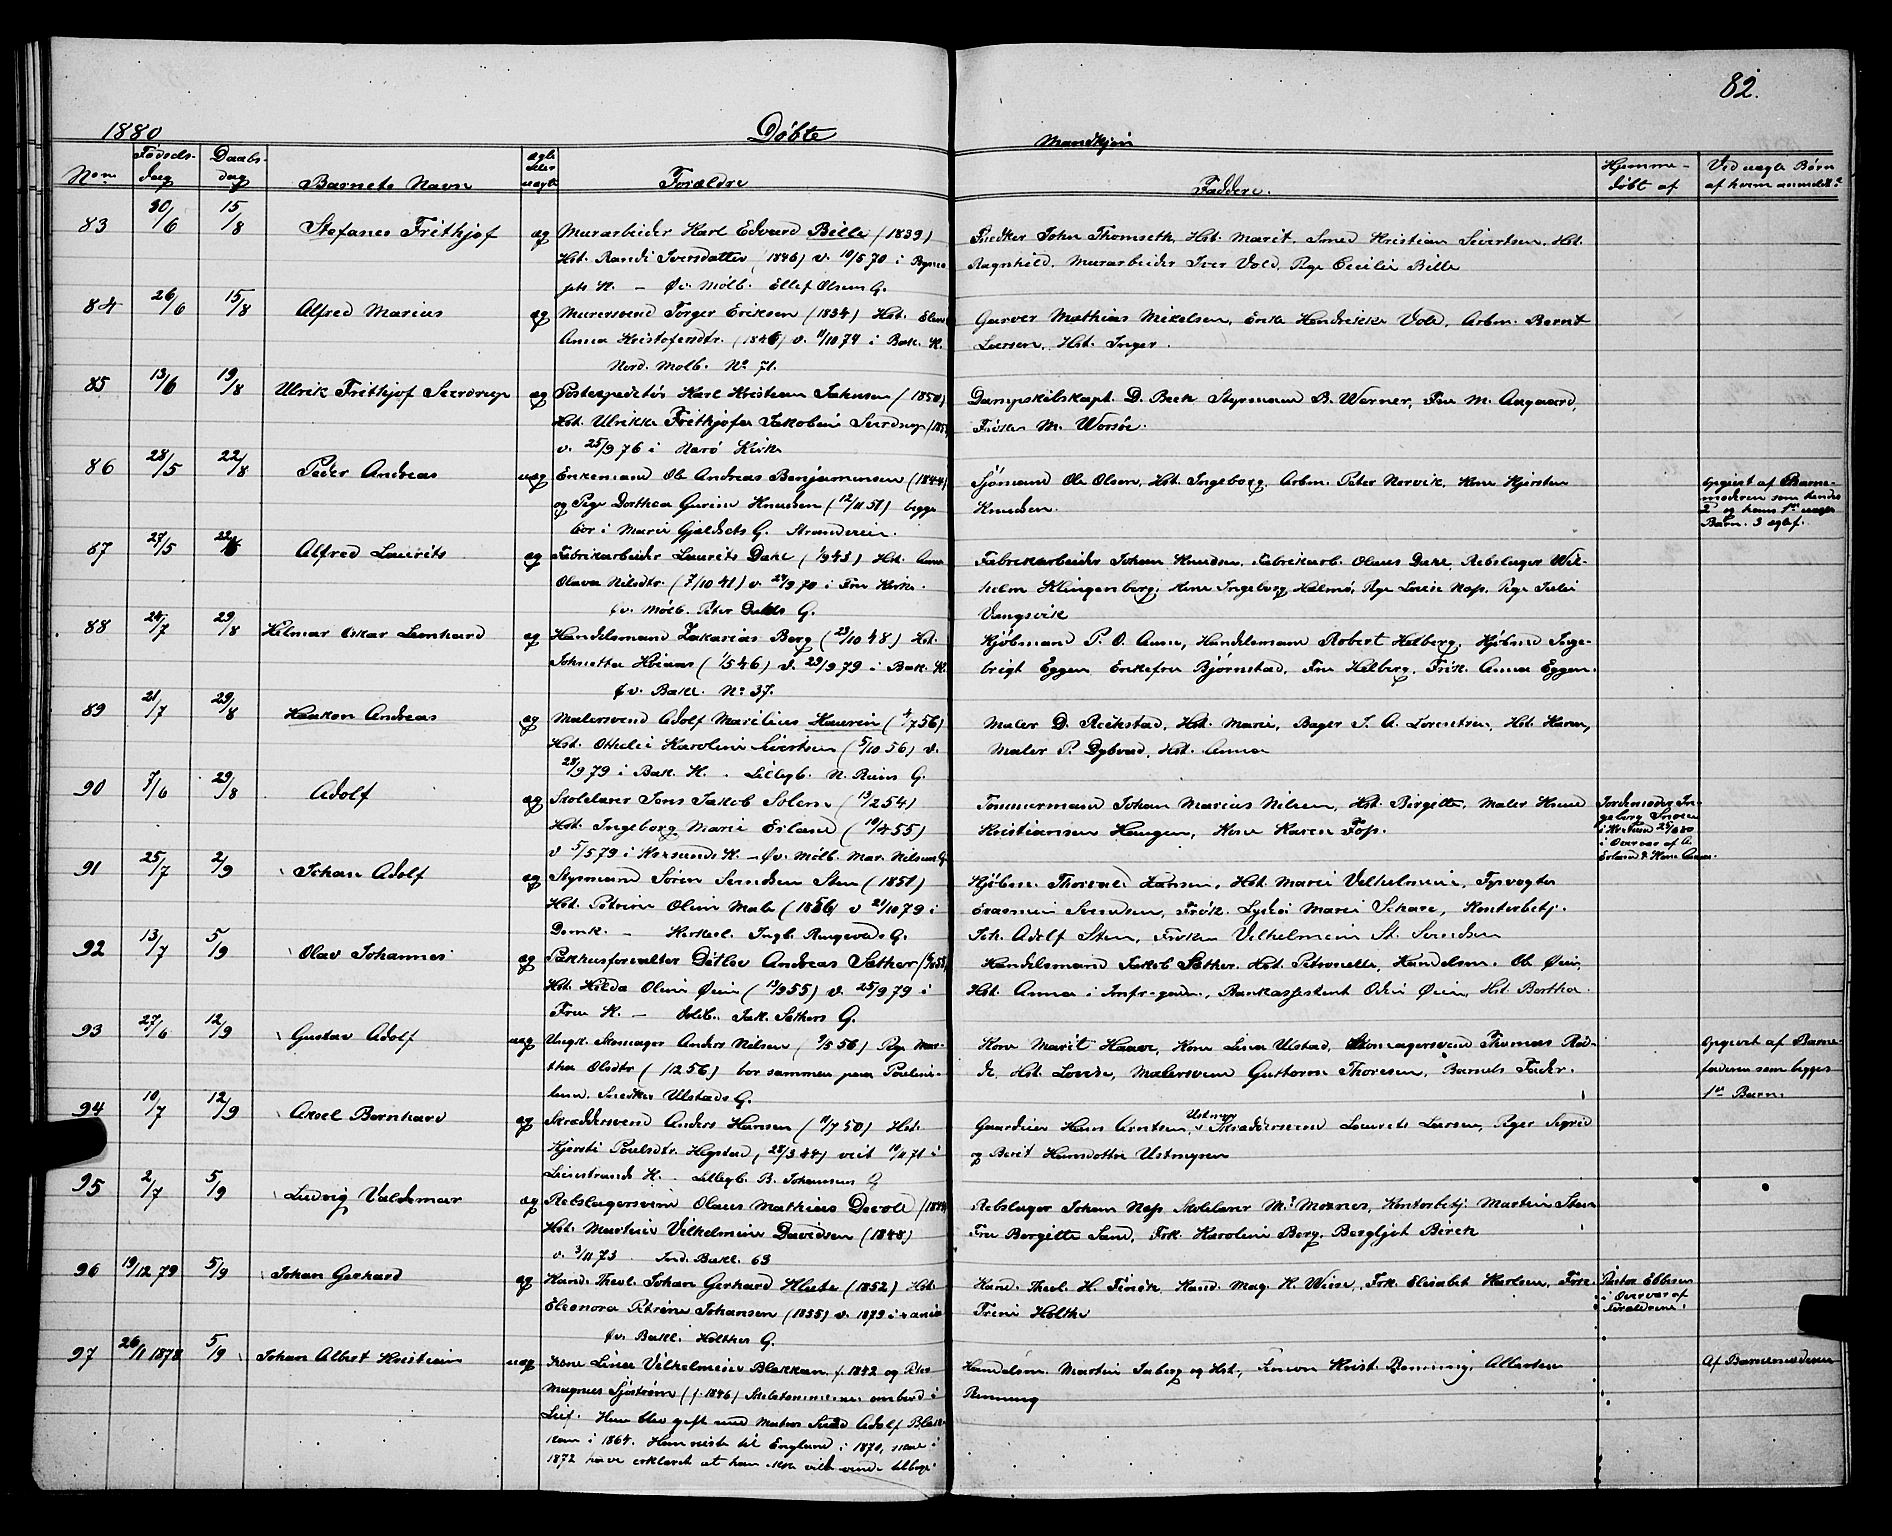 82.
1880 Døbte Mandkjøn
Non Fødsels-dag Daabs-dag Barnets Navn ægte eller uægte Forældre Faddere. Hjemme-døbt af Ved uægte Børn af hvem anmeldt?
83 30/6 15/8 Stefanes Frithjof æg Murarbeider Karl Edvard Bille (1839) Snedker John Thomseth, Hst. Marit, Smed Kristian Sivertsen, Hst.
Hst. Randi Iversdatter (1846) v. 10/5 70 i Bynes- Ragnhild, Murarbeider Iver Vold, Pige Cecilie Bille
sets K. — Øv. Molb. Ellef Olsens G.
84 26/6 15/8 Alfred Marius æg Murersvend Torger Eriksen (1834) Hst. Elen Garver Mathias Mikelsen, Enke Hendrikke Vold, Arbm. Bernt
Anna Kristofersdtr. (1846) v. 11/10 74 i Bak. K. Larsen, Hst. Inger.
Nord. Molb. No 71.
85 13/6 19/8 Ulrik Frithjof Sverdrup æg Postexpeditør Karl Kristian Jakensen (1850) Dampskibskapt. D. Beck Styrmand B. Werner, Fru M. Aagaard,
Hst. Ulrikke Frithjofa Jakobine Sverdrup Frøken M. Worsøe.
v. 25/9 76 i Nærø Kirke
86 28/5 22/8 Peder Andreas uæg Enkemand Ole Andreas Benjaminsen (1844) Sjømand Ole Olsen, Hst. Ingeborg, Arbm. Peter Nervik, Kone Kjersten opgivet af Barne-
og Pige Dorthea Gurine Knudsen (12/11 51) begge Knudsen. moderen som hendes
bor i Marie Gjeldsets G. Strandveien. 2 og hans 1ste uægte Barn. 3 ægtef.
87 27/5 22/8 Alfred Laurits æg Fabrikarbeider Laurits Dahl (1/9 43) Hst. Anne Fabrikarbeider Johan Knudsen, Fabrikarb. Olaus Dahl, Rebslager Wil-
Olava Nilsdtr. (7/10 41) v. 27/9 70 i Frue Kirke. helm Klingenberg, Kone Ingeborg Halmø, Pige Lovise Næss, Pige Julie
Øv. Molb. Peter Dahls G. Vangsvik
88 24/7 29/8 Hilmar Oskar Leonhard æg Handelsmand Zakarias Berg (23/10 48) Hst. Kjøbmand P. O. Aune, Handelsmand Robert Halberg, Kjøbmd Inge-
Johnetta Hoiaas (1/5 46) v. 29/9 79 i Bak. K. brigt Eggen, Enkefru Bjørnstad, Fru Halberg, Frøk. Anna Eggen.
Øv. Bakl. No 37.
89 21/7 29/8 Haakon Andreas æg Malersvend Adolf Marelius Hauren (4/7 56) Maler D. Reikstad, Hst. Marie, Bager J. A. Lorentzen, Hst. Karen,
Hst. Othelie Karoline Sivertsen (5/10 56) v. Maler P. Dybvad, Hst. Anna
28/9 79 i Bak. K. Lillegb. N. Reins G.
90 7/6 29/8 Adolf æg Skolelærer Jens Jakob Solem (13/2 54) Tømmermand Johan Marius Nilsen, Hst. Birgitte, Maler Knud Jordemoder In-
Hst. Ingeborg Marie Erland (10/4 55) Kristiansen Haugen, Kone Karen Foss. geborg
v 5/5 79 i K. — Øv. Molb. Mar. Nilsens G. i Overvær af A. Erland & Kone Anna.
91 25/7 2/9 Johan Adolf æg Styrmand Søren Svendsen Sten (1851) Kjøbm. Thorvald Hansen, Hst. Marie Vilhelmine, Fyrvogter
Hst. Petrine Oline Male (1856) v 21/10 79 i Erasmus Svendsen, Frøk. Lydia Marie Schare, Kontorbetj.
Domk. — Kirkesl. Ingb. Ringsveds G. Joh. Adolf Sten, Frøken Vilhelmine St. Svendsen
92 13/7 5/9 Olav Johannes æg Pakhusforvalter Ditlev Andreas Sæther Handelsmand Jakob Sæther, Hst. Petronelle, Handelsm. Ole Øien,
Hst. Hilda Oline Øien (13/9 55) v. 25/9 79 i Hst. Anna i Jomfrugaden, Bankassistent Odin Øien, Hst. Bertha
Frue K. — Jak. Sæthers G.
93 27/6 12/9 Gustav Adolf uæg Ungk. Skomager Anders Nilsen (9/5 56) Pige Mar- Kone Marit Haave, Kone Lina Ulstad, Skomagersvend Thomas Rød- opgivet af Barne-
tha Olsdtr (1256) bor sammen paa Pauline- de, Hst. Lovise, Malersvend Guttorm Thoresen, Barnets Fader. faderen som begges
lund. Snedker Ulstads G. 1ste Barn.
94 10/7 12/9 Aksel Bernhard æg Skræddersvend Anders Hansen (11/7 50) Hst. Gaardeier Hans Arntsen Ustmyr, Skræddersvend Laurits Larsen, Piger Sigrid
Kjersti Paulsdtr. Hegstad, (28/3 44) viet 19/11 71 i og Berit Hansdotter Ustmyren
Leinstrands K. — Lillegb. B. Johansens G
95 2/7 5/9 Ludvig Valdemar æg Rebslagersvend Olaus Mathias Devold (1844) Rebslager Johan Næss, Skolelærer Ms. Moxnes, Kontorbetj. Martin Steen
Hst. Martine Vilhelmine Davidsen (1848) Fru Bergitte Sand, Frk. Karoline Berg, Bergljot Birch
v. 3/11 73 Ind. Bakl. 63
96 19/12 79 5/9 Johan Gerhard æg Kand. Theol. Johan Gerhard Kliste (1852) Hst. Kand. Theol. H. Finck, Kand. Mag. K. Wiese, Frk. Elisabet Karlsen, Frk. Pastor Ebbesen
Eleonora Petrine Johansen (1855) v. 1879 i Irene Holthe i Overvær af
Øv. Bakl. Holthes G. Forældrene.
97 26/11 1878 5/9 Johan Albert Kristian uæg Kone Lina Vilhelmine Blakkan f. 1842 og Peter Handelsm. Martin Faberg og Hst., Simon Krist. Renning, Albertine Af Barnemoderen
Magnus Sjøstrøm (f. 1846) Skibstømmermand ombord i Renning
Leif. Hun blev gift med Matros Svend Adolf Blak-
kan i 1864. Han reiste til England i 1870, skal i
1872 have erklæret at han ikke vilde vende tilbage